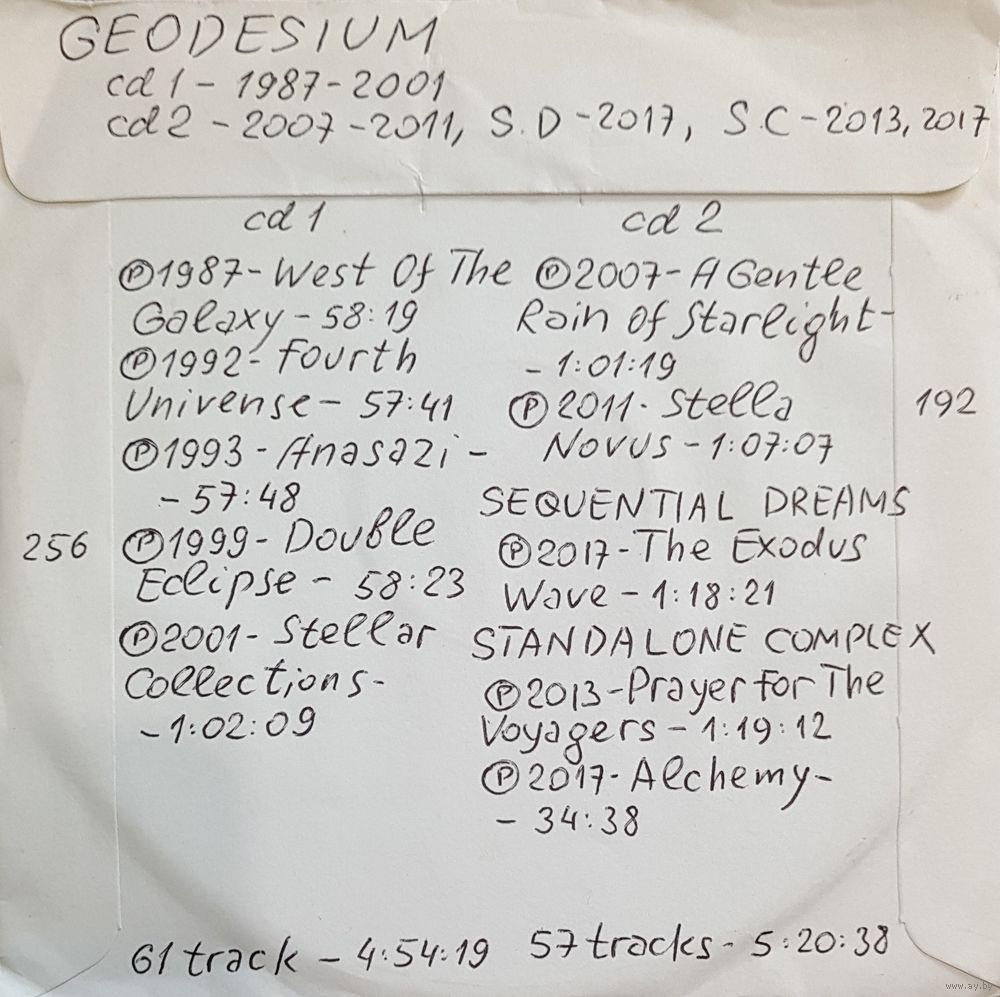 GEODESIUM
cd 1 - 1987-2001
cd 2 - 2007-2011, S.D-2017, S.C-2013, 2017
cd 1
℗1987- West Of The
Galaxy - 58:19
℗1992- Fourth
Univense - 57:41
℗1993 - Anasazi -
- 57:48
256
℗1999- Double
Eclipse - 58:23
℗2001- Stellar
Collections-
- 1:02:09
61 track - 4:54:19
cd 2
℗2007- A Gentle
Rain Of Starlight-
- 1:01:19
℗2011- Stella
Novus - 1:07:07
192
SEQUENTIAL DREAMS
℗2017-The Exodus
Wave - 1:18:21
STANDALONE COMPLEX
℗2013-Prayer For The
Voyagers - 1:19:12
℗2017- Alchemy-
- 34:38
57 tracks - 5:20:38
www.ay.by